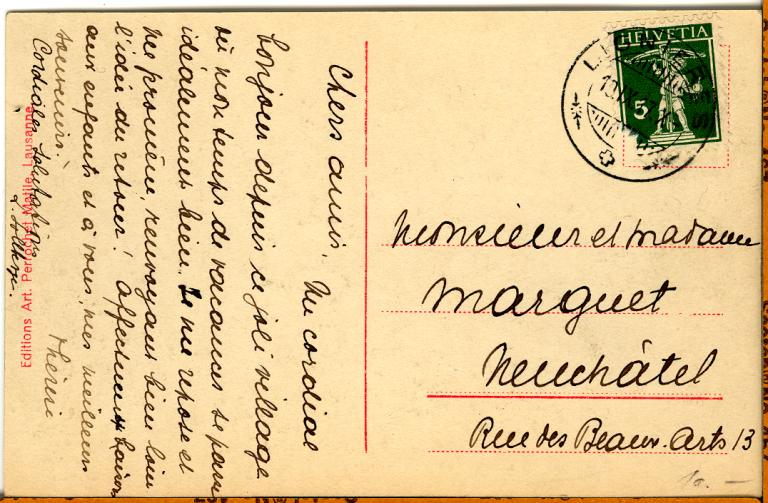 Chers amis. Un cordial
bonjour depuis ce joli village
où mon temps de vacances se passe
idéalement bien. Je me repose et
me promène, renvoyant bien loin
l'idée du retour! Affectueux baisers
aux enfants et à vous, mes meilleurs
souvenirs! Thérèse
Cordiales salutations
Editions Art. Perrochet Matile, Lausanne
HELVETIA
5
Monsieur et madame
Marguet
Neuchâtel
Rue des Beaux-Arts 13
10.-